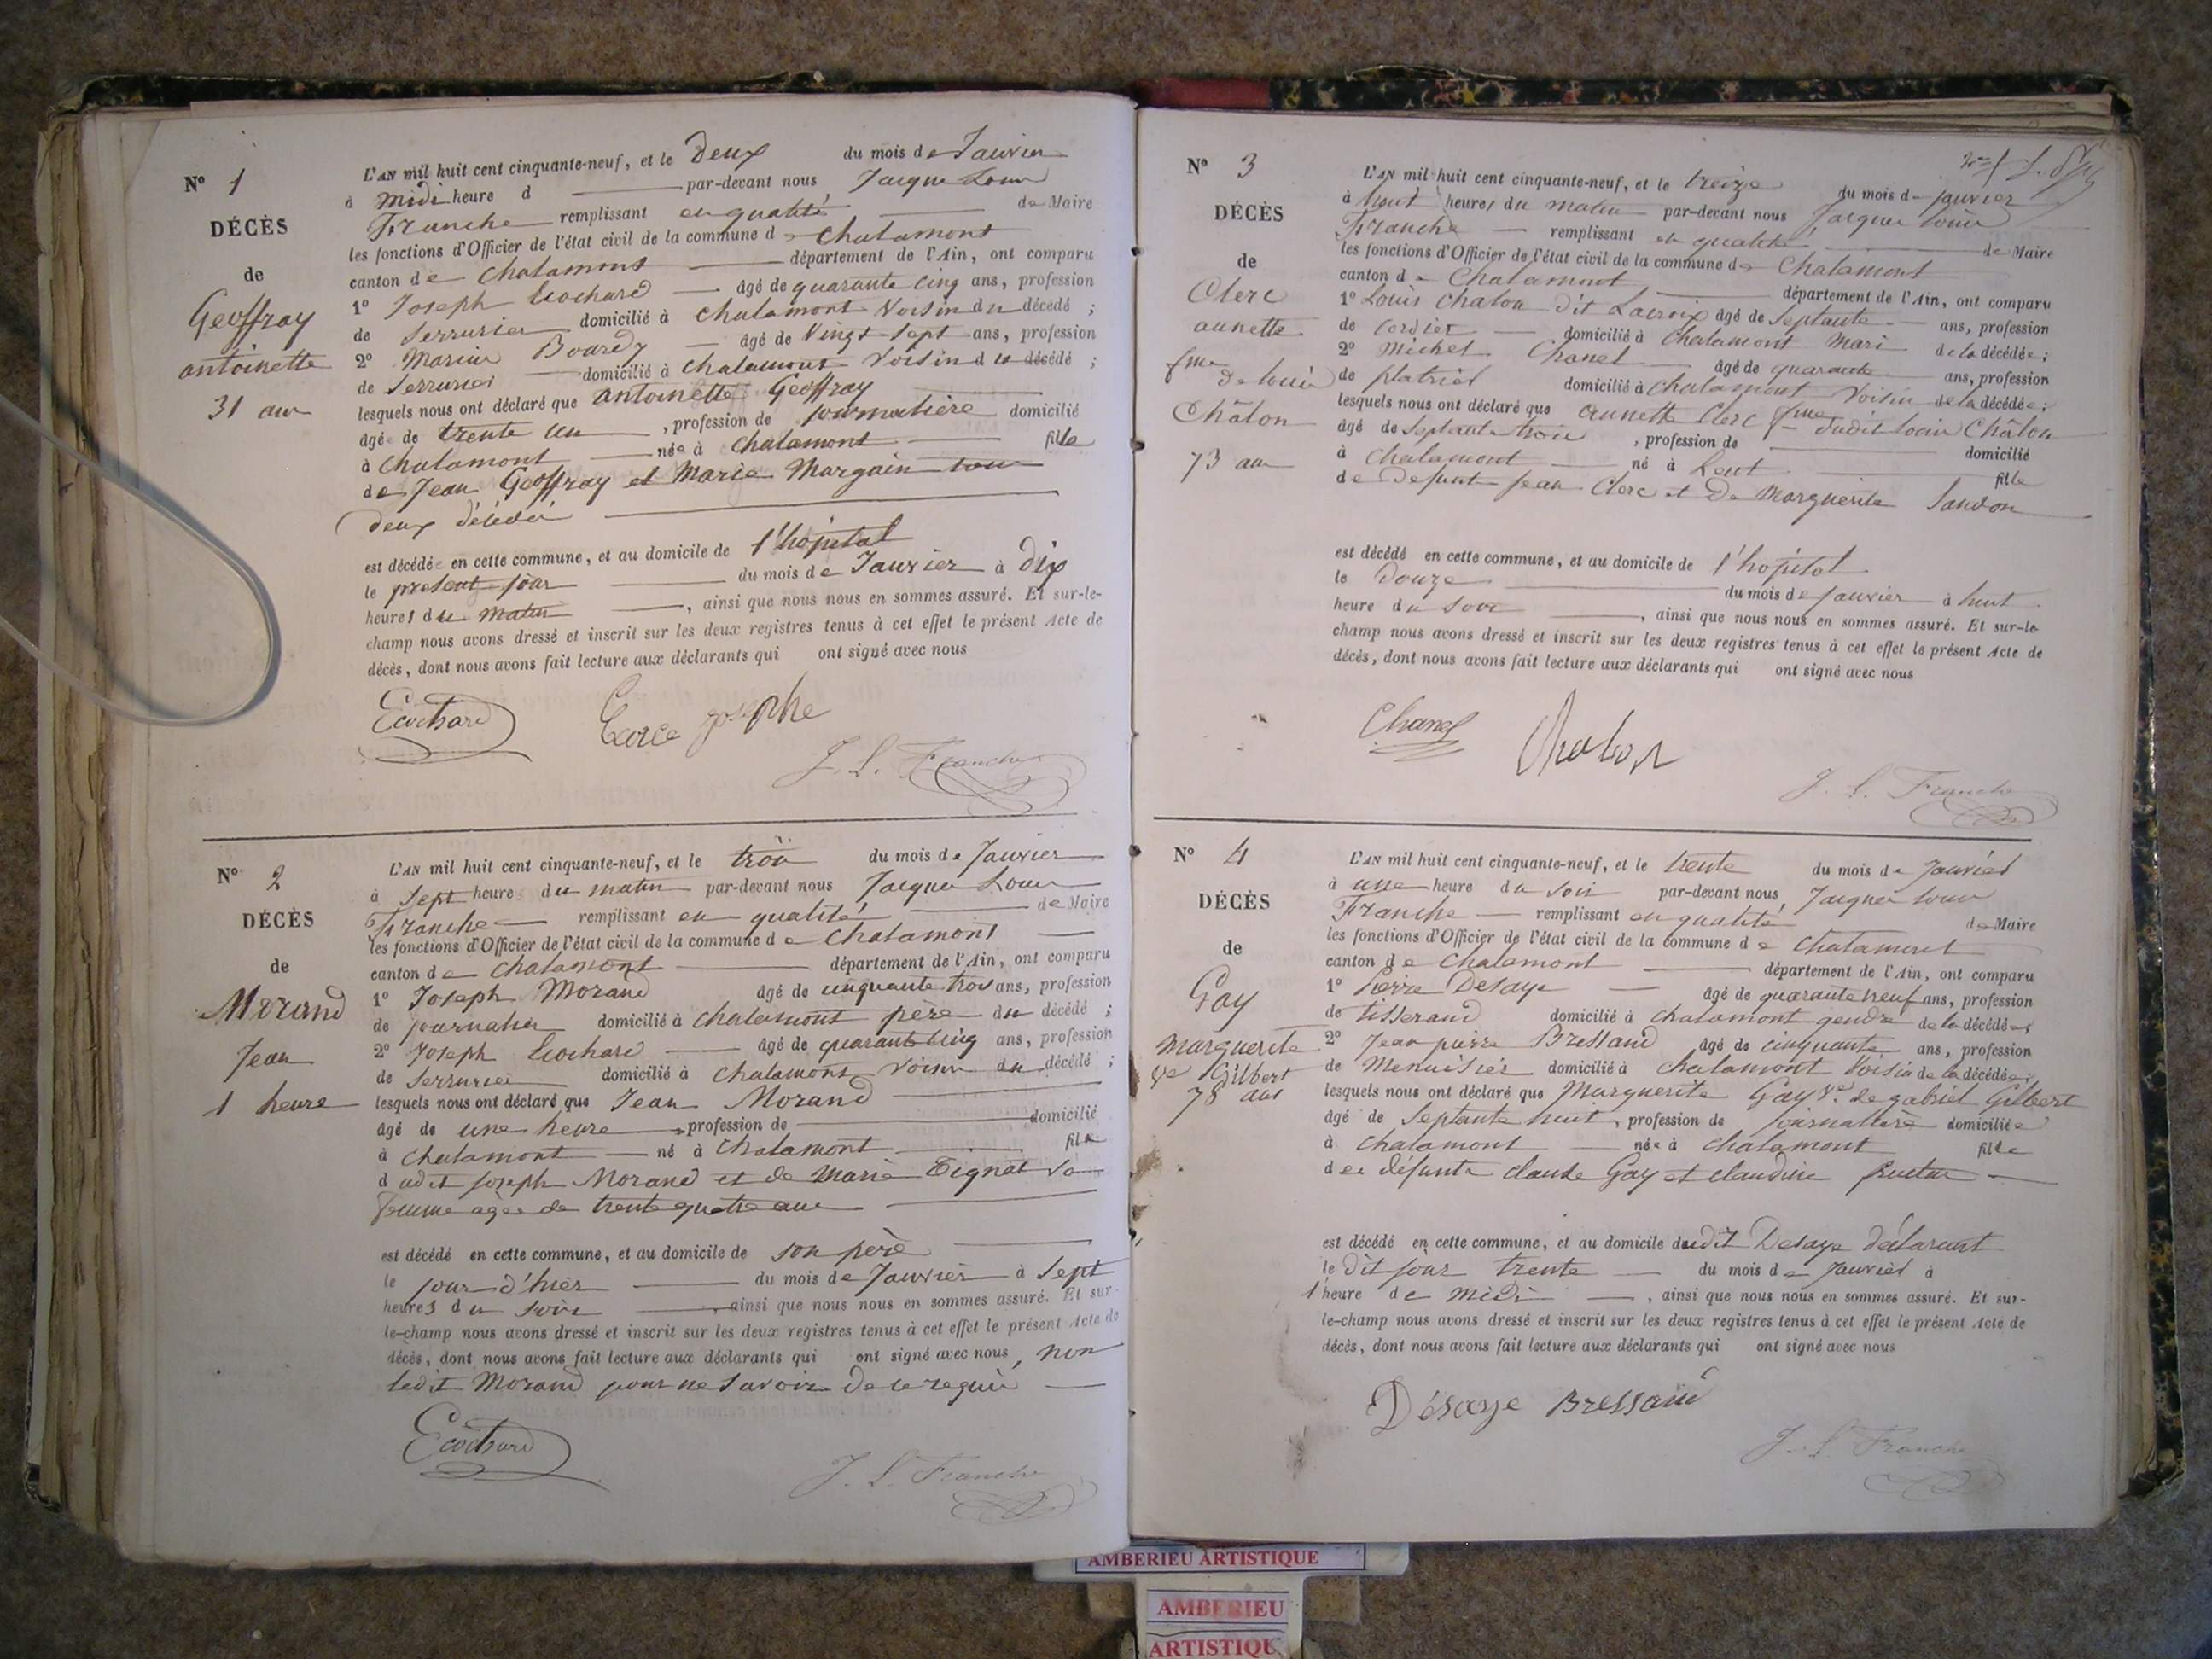 N° 1
DÉCÈS
de
Geoffray
antoinette
31 ans
L'AN mil huit cent cinquante-neuf, et le Deux du mois de Janvier
à midi heure d par-devant nous Jacques Louis
Franche remplissant en qualité de Maire
les fonctions d'Officier de l'état civil de la commune de Chalamont
canton de Chalamont département de l'Ain, ont comparu
1° Joseph Ecochard âgé de quarante cinq ans, profession
de Serrurier domicilié à Chalamont Voisin du décédé ;
2° Marin Bourdy âgé de Vingt sept ans, profession
de Serrurier domicilié à Chalamont Voisin du décédé ;
lesquels nous ont déclaré que Antoinette Geoffray
âgée de trente un , profession de journalière domicilié
à Chalamont née à Chalamont fille
de Jean Geoffray et Marie Margain tous
deux décédés
est décédée en cette commune, et au domicile de l'hôpital
le présent jour du mois de Janvier à dix
heures du matin , ainsi que nous nous en sommes assuré. Et sur-le-
champ nous avons dressé et inscrit sur les deux registres tenus à cet effet le présent Acte de
décès, dont nous avons fait lecture aux déclarants qui ont signé avec nous
Ecochard josephe
J. L. Franche
N° 2
DÉCÈS
de
Morand
Jean
1 heure
L'AN mil huit cent cinquante-neuf, et le trois du mois de Janvier
à Sept heures du matin par-devant nous Jacques Louis
Franche remplissant en qualité de Maire
les fonctions d'Officier de l'état civil de la commune de Chalamont
canton de Chalamont département de l'Ain, ont comparu
1° Joseph Morand âgé de cinquante trois ans, profession
de journalier domicilié à Chalamont père du décédé ;
2° Joseph Ecochard âgé de quarante cinq ans, profession
de Serrurier domicilié à Chalamont Voisin du décédé ;
lesquels nous ont déclaré que Jean Morand
âgé de une heure profession de domicilié
à Chalamont né à Chalamont fils
dudit joseph Morand et de Marie Tignat sa
femme âgée de trente quatre ans
est décédé en cette commune, et au domicile de son père
le jour d'hier du mois de Janvier à Sept
heures du soir ainsi que nous nous en sommes assuré. Et sur-
le-champ nous avons dressé et inscrit sur les deux registres tenus à cet effet le présent Acte de
décès, dont nous avons fait lecture aux déclarants qui ont signé avec nous, non
ledit Morand pour ne savoir de ce requis
Ecochard
J. L. Franche
N° 3
DÉCÈS
de
Clerc
annette
fme
de louis
Châlon
73 ans
L'AN mil huit cent cinquante-neuf, et le treize du mois de janvier
à huit heures du matin par-devant nous Jacques louis
Franche remplissant en qualité de Maire
les fonctions d'Officier de l'état civil de la commune de Chalamont
canton de Chalamont département de l'Ain, ont comparu
1° Louis Chalon dit Lacroix âgé de Septante ans, profession
de Cordier domicilié à Chalamont mari de la décédée ;
2° Michel Chanel âgé de quarante ans, profession
de platrier domicilié à Chalamont Voisin de la décédée ;
lesquels nous ont déclaré que annette Clerc fme dudit louis Châlon
âgé de Septante trois , profession de domicilié
à Chalamont né à Lent fille
de defunt Jean Clerc et De Marguerite Sandon
est décédé en cette commune, et au domicile de l'hôpital
le Douze du mois de janvier à huit
heure du soir , ainsi que nous nous en sommes assuré. Et sur-le
champ nous avons dressé et inscrit sur les deux registres tenus à cet effet le présent Acte de
décès, dont nous avons fait lecture aux déclarants qui ont signé avec nous
Chanel Chalon
J. L. Franche
N° 4
DÉCÈS
de
Gay
marguerite
Ve Gilbert
78 ans
L'AN mil huit cent cinquante-neuf, et le trente du mois de Janvier
à une heure du soir par-devant nous, Jacques louis
Franche remplissant en qualité de Maire
les fonctions d'Officier de l'état civil de la commune de Chalamont
canton de Chalamont département de l'Ain, ont comparu
1° Pierre Desaye âgé de quarante neuf ans, profession
de tisserand domicilié à Chalamont gendre de la décédée
2° Jean pierre Bressand âgé de cinquante ans, profession
de Menuisier domicilié à Chalamont Voisin de la décédée ;
lesquels nous ont déclaré que Marguerite Gay Ve de gabriel Gilbert
âgé de Septante huit , profession de journalière domiciliée
à Chalamont née à Chalamont fille
des défunts claude Gay et claudine
est décédé en cette commune, et au domicile dudit Desaye déclarant
le dit jour trente du mois de Janvier à
l'heure de Midi , ainsi que nous nous en sommes assuré. Et sur-
le-champ nous avons dressé et inscrit sur les deux registres tenus à cet effet le présent Acte de
décès, dont nous avons fait lecture aux déclarants qui ont signé avec nous
Désaye Bressand
J. L. Franche
AMBERIEU ARTISTIQUE
AMBERIEU
ARTISTIQUE